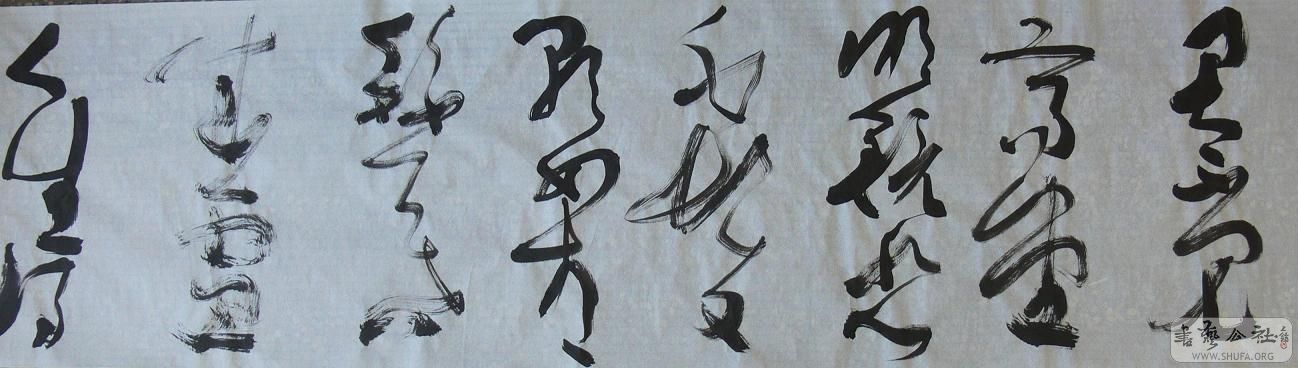 君不見
高堂
明鏡悲
白髮
朝如青
絲暮
成雪
人生得
書藝公社
WWW.SHUFA.ORG